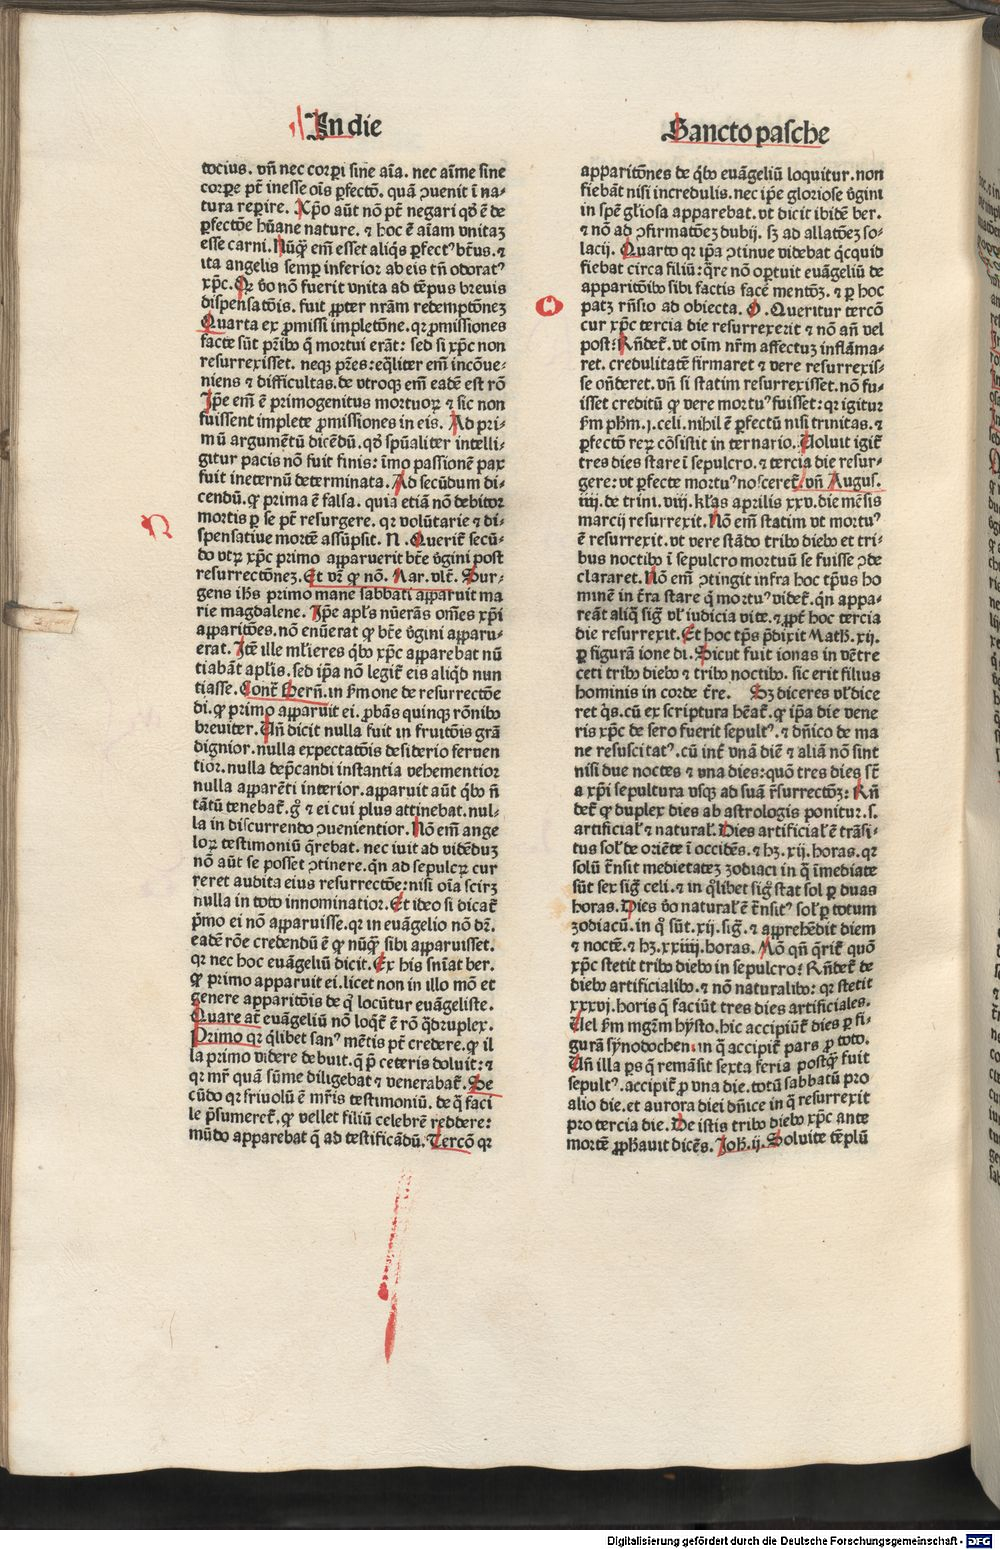 In die
Sancto pasche
tocius. vñ nec corpi sine aīa. nec aīme sine
corpe pt̄ inesse oīs ꝑfectō. quā ꝯuenit ī na⸗
tura reperire. Xp̄o aūt nō pt̄ negari qd̄ ē de
ꝑfectōe hūane nature. ⁊ hoc ē aīam vnitaꝫ
esse carni. Nūqͣꝫ em̄ esset aliqͥs ꝑfectꝰ btūs. ⁊
ita angelis semꝑ inferior ab eis tn̄ odoratꝰ
xp̄c. Qꝛ v̄o nō fuerit vnita ad tēpus breuis
dispensatōis. fuit ꝓpter nr̄am redemptōneꝫ
Quarta ex ꝓmissi impletōne. qꝛ ꝓmissiones
facte sūt pr̄ibꝰ qͥ mortui erāt: sed si xp̄c non
resurrexisset. neqꝫ pr̄es: eqͣliter em̄ incōue⸗
niens ⁊ difficultas. de vtroqꝫ em̄ eadē est rō
Ip̄e em̄ ē primogenitus mortuoꝝ ⁊ sic non
fuissent implete ꝓmissiones in eis. Ad pri⸗
mū argumētū dicēdū. qd̄ spūaliter intelli⸗
gitur pacis nō fuit finis: īmo passionē pax
fuit ineternū determinata. Ad secūdum di⸗
cendū. ꝙ prima ē falsa. quia etiā nō debitor
mortis ꝑ se pt̄ resurgere. qꝛ volūtarie ⁊ di⸗
spensatiue mortē assūpsit. N. Querit̄ secū⸗
do vtꝝ xp̄c primo apparuerit bt̄e v̄gini post
resurrectōneꝫ. Et vr̄ ꝙ nō. Mar. vlt̄. Sur⸗
gens ih̄s primo mane sabbati apparuit ma
rie magdalene. Ip̄e apl̄s nūerās om̄es xp̄i
apparitōes. nō enūerat ꝙ bt̄e v̄gini apparu⸗
erat. Itē ille ml̄ieres qͥbꝰ xp̄c apparebat nū
tiabāt apl̄is. sed ip̄a nō legit̄ eis aliqͥd nun
tiasse. Cont̄ Bern̄. in s̄mone de resurrectōe
di. ꝙ primo apparuit ei. ꝓbās quinqꝫ rōnibꝰ
breuiter. Vn̄ dicit nulla fuit in fruitōis grā
dignior. nulla expectatōis desiderio feruen
tior. nulla dep̄candi instantia vehementior
nulla apparēti interior. apparuit aūt qͥbꝰ n̄
tātū tenebat̄. gͦ ⁊ ei cui plus attinebat. nul⸗
la in discurrendo ꝯuenientior. Nō em̄ ange
loꝝ testimoniū qͣrebat. nec iuit ad vidēduꝫ
nō aūt se posset ꝯtinere. qͥn ad sepulcꝝ cur
reret audita eius resurrectōe: nisi oīa scirꝫ
nulla in toto innominatior. Et ideo si dicat̄
pͥmo ei nō apparuisse. qꝛ in euāgelio nō dr̄.
eadē rōe credendū ē ꝙ nūqͣꝫ sibi apparuisset.
qꝛ nec hoc euāgeliū dicit. Ex his sn̄iat ber.
ꝙ primo apparuit ei. licet non in illo mō et
genere apparitōis de qͦ locūtur euāgeliste.
Quare at̄ euāgeliū nō loqͥt̄ ē rō qͣdruplex.
Primo qꝛ qͥlibet sanꝰ mētis pt̄ credere. ꝙ il
la primo videre debuit. qͥ p̄ ceteris doluit: ⁊
qꝛ mr̄ quā sūme diligebat ⁊ venerabat̄. Se
cūdo qꝛ friuolū ē mr̄is testimoniū. de qͦ faci
le p̄sumeret̄. ꝙ vellet filiū celebrē reddere:
mūdo apparebat qͥ ad testificādū. Tercō qꝛ
apparitōnes de qͥbꝰ euāgeliū loquitur. non
fiebāt nisi incredulis. nec ip̄e gloriose v̄gini
in spē gl̄iosa apparebat. vt dicit ibidē ber.
⁊ nō ad ꝯfirmatōeꝫ dubij. sꝫ ad allatōeꝫ so⸗
lacij. Quarto qꝛ ip̄a ꝯtinue videbat qͥcquid
fiebat circa filiū: qͣre nō oꝑtuit euāgeliū de
apparitōibꝰ sibi factis facē mentōꝫ. ⁊ ꝑ hoc
patꝫ rn̄sio ad obiecta. O. Queritur tercō
cur xp̄c tercia die resurrexerit ⁊ nō an̄ vel
post: Rn̄det̄. vt oīm nr̄m affectuꝫ inflāma⸗
ret. credulitatē firmaret ⁊ vere resurrexis⸗
se on̄deret. vn̄ si statim resurrexisset. nō fu⸗
isset creditū ꝙ vere mortuꝰ fuisset: qꝛ igitur
s̄m ph̄m. j. celi. nihil ē ꝑfectū nisi trinitas. ⁊
ꝑfectō reꝝ cōsistit in ternario. Uoluit igit̄
tres dies stare ī sepulcro. ⁊ tercia die resur⸗
gere: vt ꝑfecte mortuꝰ nosceret̄. vn̄ Augus.
iiij. de trini. viij. kl̄as aprilis xxv. die mēsis
marcij resurrexit. Nō em̄ statim vt mortuꝰ
ē resurrexit. vt vere stādo tribꝰ diebꝰ et tri⸗
bus noctibꝰ ī sepulcro mortuū se fuisse ꝯde
clararet. Nō em̄ ꝯtingit infra hoc tp̄us ho
minē in t̄ra stare qͥ mortuꝰ videt̄. qͥn appa⸗
reāt aliqͥ siḡ vl̄ iudicia vite. ⁊ ꝓpt̄ hoc tercia
die resurrexit. Et hoc tp̄s p̄dixit Math. xij.
ꝑ figurā ione di. Sicut fuit ionas in vētre
ceti tribꝰ diebꝰ ⁊ tribꝰ noctibꝰ. sic erit filius
hominis in corde t̄re. Sꝫ diceres vl̄ dice
ret qͥs. cū ex scriptura hēat̄. ꝙ ip̄a die vene
ris xp̄c de sero fuerit sepultꝰ. ⁊ dn̄ico de ma
ne resuscitatꝰ. cū int̄ vnā diē ⁊ aliā nō sint
nisi due noctes ⁊ vna dies: quō tres dies st̄
a xp̄i sepultura vsqꝫ ad suā r̄surrectōꝫ: Rn̄
det̄ ꝙ duplex dies ab astrologis ponitur. s.
artificial̄ ⁊ natural̄. Dies artificial̄ ē trāsi⸗
tus sol̄ de oriēte ī occidēs. ⁊ hꝫ. xij. horas. qꝛ
solū t̄nsit medietateꝫ zodiaci in qͥ īmediate
sūt sex siḡ celi. ⁊ in qͦlibet siḡ stat sol ꝑ duas
horas. Dies v̄o natural̄ ē t̄nsitꝰ sol̄ ꝑ totum
zodiacū. in qͦ sūt. xij. siḡ. ⁊ apprehēdit diem
⁊ noctē. ⁊ hꝫ. xxiiij. horas. Mō qn̄ qͣrit̄ quō
xp̄c stetit tribꝰ diebꝰ in sepulcro: Rn̄det̄ de
diebꝰ artificialibꝰ. ⁊ nō naturalibꝰ: qꝛ stetit
xxxvj. horis qͥ faciūt tres dies artificiales.
Uel s̄m mgr̄m hȳsto. hic accipiūt̄ dies ꝑ fi⸗
gurā sȳnodochen. in qͣ accipit̄ pars ꝓ toto.
Vn̄ illa ꝑs qͥ remāsit sexta feria postqͣꝫ fuit
sepultꝰ. accipit̄ ꝓ vna die. totū sabbatū pro
alio die. et aurora diei dn̄ice in qͣ resurrexit
pro tercia die. De istis tribꝰ diebꝰ xp̄c ante
mortē ꝓph̄auit dicēs. Joh̄. ij. Soluite tēplū
N
O
Digitalisierung gefördert durch die Deutsche Forschungsgemeinschaft - DFG